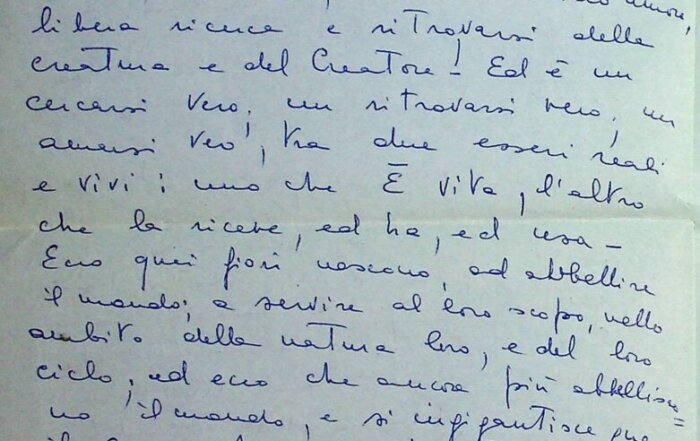 amore,
libera ricerca e ritrovarsi della
creatura e del Creatore - Ed è un
cercarsi vero, un ritrovarsi vero, un
amarsi vero, tra due esseri reali
e vivi: uno che È vita, l'altro
che la riceve, ed ha, ed usa -
Ecco quei fiori nascono, ad abbellire
il mondo; a servire al loro scopo, nello
ambito della natura loro, e del loro
ciclo, ed ecco che ancora più abbellisco=
no il mondo, e si ingigantisce
il